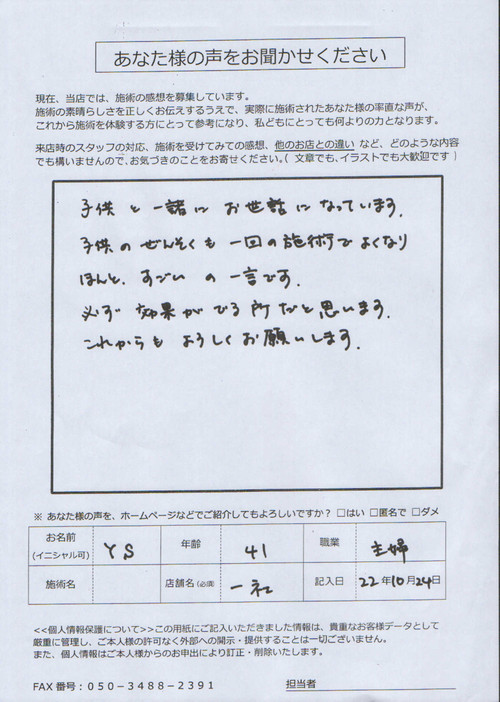 あなた様の声をお聞かせください
現在、当店では、施術の感想を募集しています。
施術の素晴らしさを正しくお伝えするうえで、実際に施術されたあなた様の率直な声が、
これから施術を体験する方にとって参考になり、私どもにとっても何よりの力となります。
来店時のスタッフの対応、施術を受けてみての感想、他のお店との違い など、どのような内容
でも構いませんので、お気づきのことをお寄せください。( 文章でも、イラストでも大歓迎です )
子供と一諸に お世話になっています。
子供のぜんそくも 一回の施術でよくなり
ほんと、すごい の一言です。
必ず 効果がでる所だと思います。
これからも よろしくお願いします。
※ あなた様の声を、ホームページなどでご紹介してもよろしいですか? □はい □匿名で □ダメ
お名前 (イニシャル可) YS 年齢 41 職業 主婦
施術名 店舗名 (必須) 一社 記入日 22年10月24日
<<個人情報保護について>>この用紙にご記入いただきました情報は、貴重なお客様データとして
厳重に管理し、ご本人様の許可なく外部への開示・提供することは一切ございません。
また、個人情報はご本人様からのお申出により訂正・削除いたします。
FAX 番号：050－3488－2391 担当者